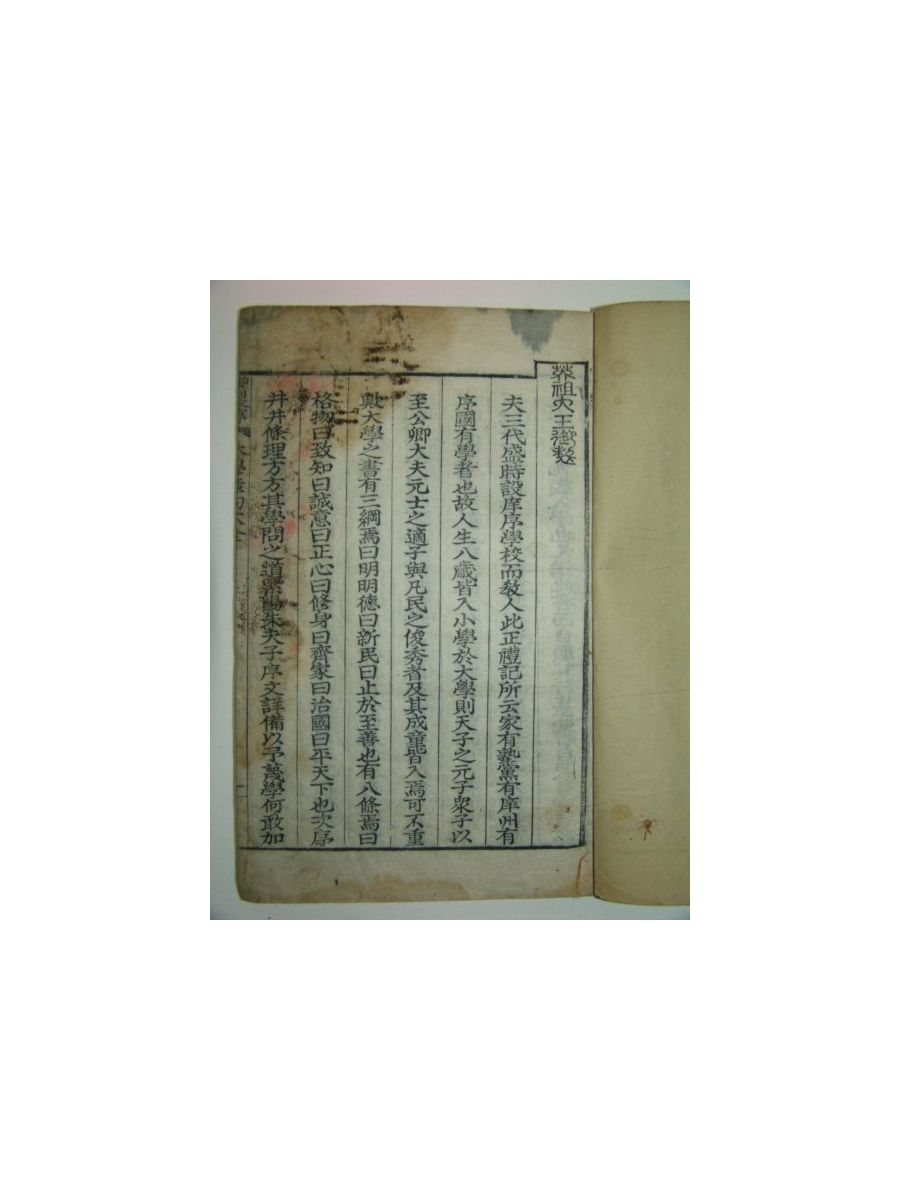 英祖大王御製
夫三代盛時設庠序學校而敎人此正禮記所云家有塾黨有庠州有
序國有學者也故人生八歲皆入小學於大學則天子之元子衆子以
至公卿大夫元士之適子與凡民之俊秀者及其成童皆入焉可不重
歟大學之書有三綱焉曰明明德曰新民曰止於至善也有八條焉曰
格物曰致知曰誠意曰正心曰修身曰齊家曰治國曰平天下也次序
井井條理方方其學問之道紫陽朱夫子序文詳備以予蔑學何敢加
大學章句大全